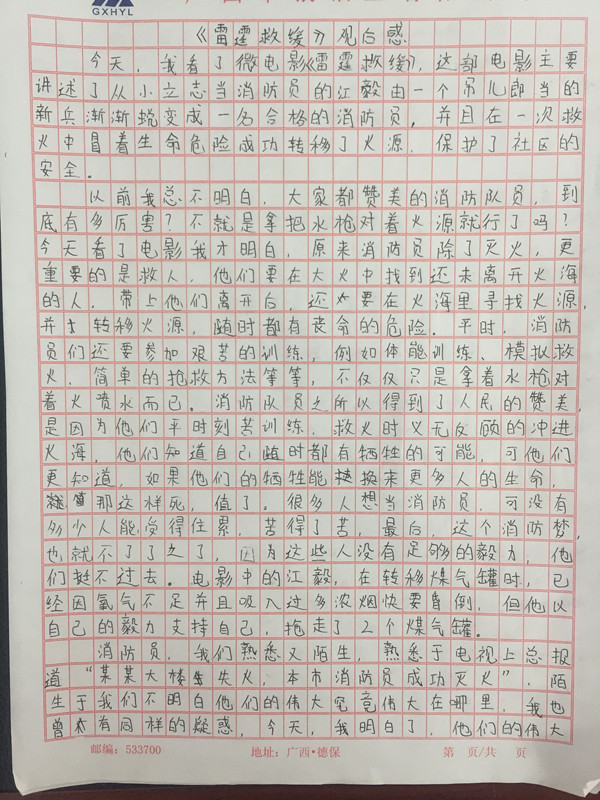 GXHYL
《雷霆救缓》观后感
今天，我看了微电影《雷霆救缓》，这部电影主要
讲述了从小立志当消防员的江毅由一个吊儿郎当的
新兵渐渐蜕变成一名合格的消防员，并且在一次救
火中冒着生命危险成功转移了火源，保护了社区的
安全。
以前我总不明白，大家都赞美的消防队员，到
底有多厉害？不就是拿把水枪对着火源就行了吗？
今天看了电影我才明白，原来消防员除了灭火，更
重要的是救人，他们要在大火中找到还未离开火海
的人，带上他们离开白，还要在火海里寻找火源，
并转移火源，随时都有丧命的危险。平时，消防
员们还要参加艰苦的训练，例如体能训练、模拟救
火、简单的抢救方法等等，不仅仅只是拿着水枪对
着火喷水而已。消防队员之所以得到了人民的赞美，
是因为他们平时刻苦训练，救火时义无反顾的冲进
火海，他们知道自己随时都有牺牲的可能，可他们
更知道，如果他们的牺牲能换来更多人的生命，
那这样死，值了。很多人想当消防员，可没有
多少人能受得住累，苦得了苦，最后，这个消防梦，
也就不了了之了，因为这些人没有足够的毅力，他
们挺不过去。电影中的江毅，在转移煤气罐时，已
经因氧气不足并且吸入过多浓烟快要昏倒，但他以
自己的毅力支持自己，拖走了2个煤气罐。
消防员，我们熟悉又陌生，熟悉于电视上总报
道“某某大楼失火，本市消防员成功灭火”，陌
生于我们不明白他们的伟大究竟伟大在哪里，我也
曾有同样的疑惑，今天，我明白了，他们的伟大
邮编：533700 地址：广西·德保 第 页/共 页